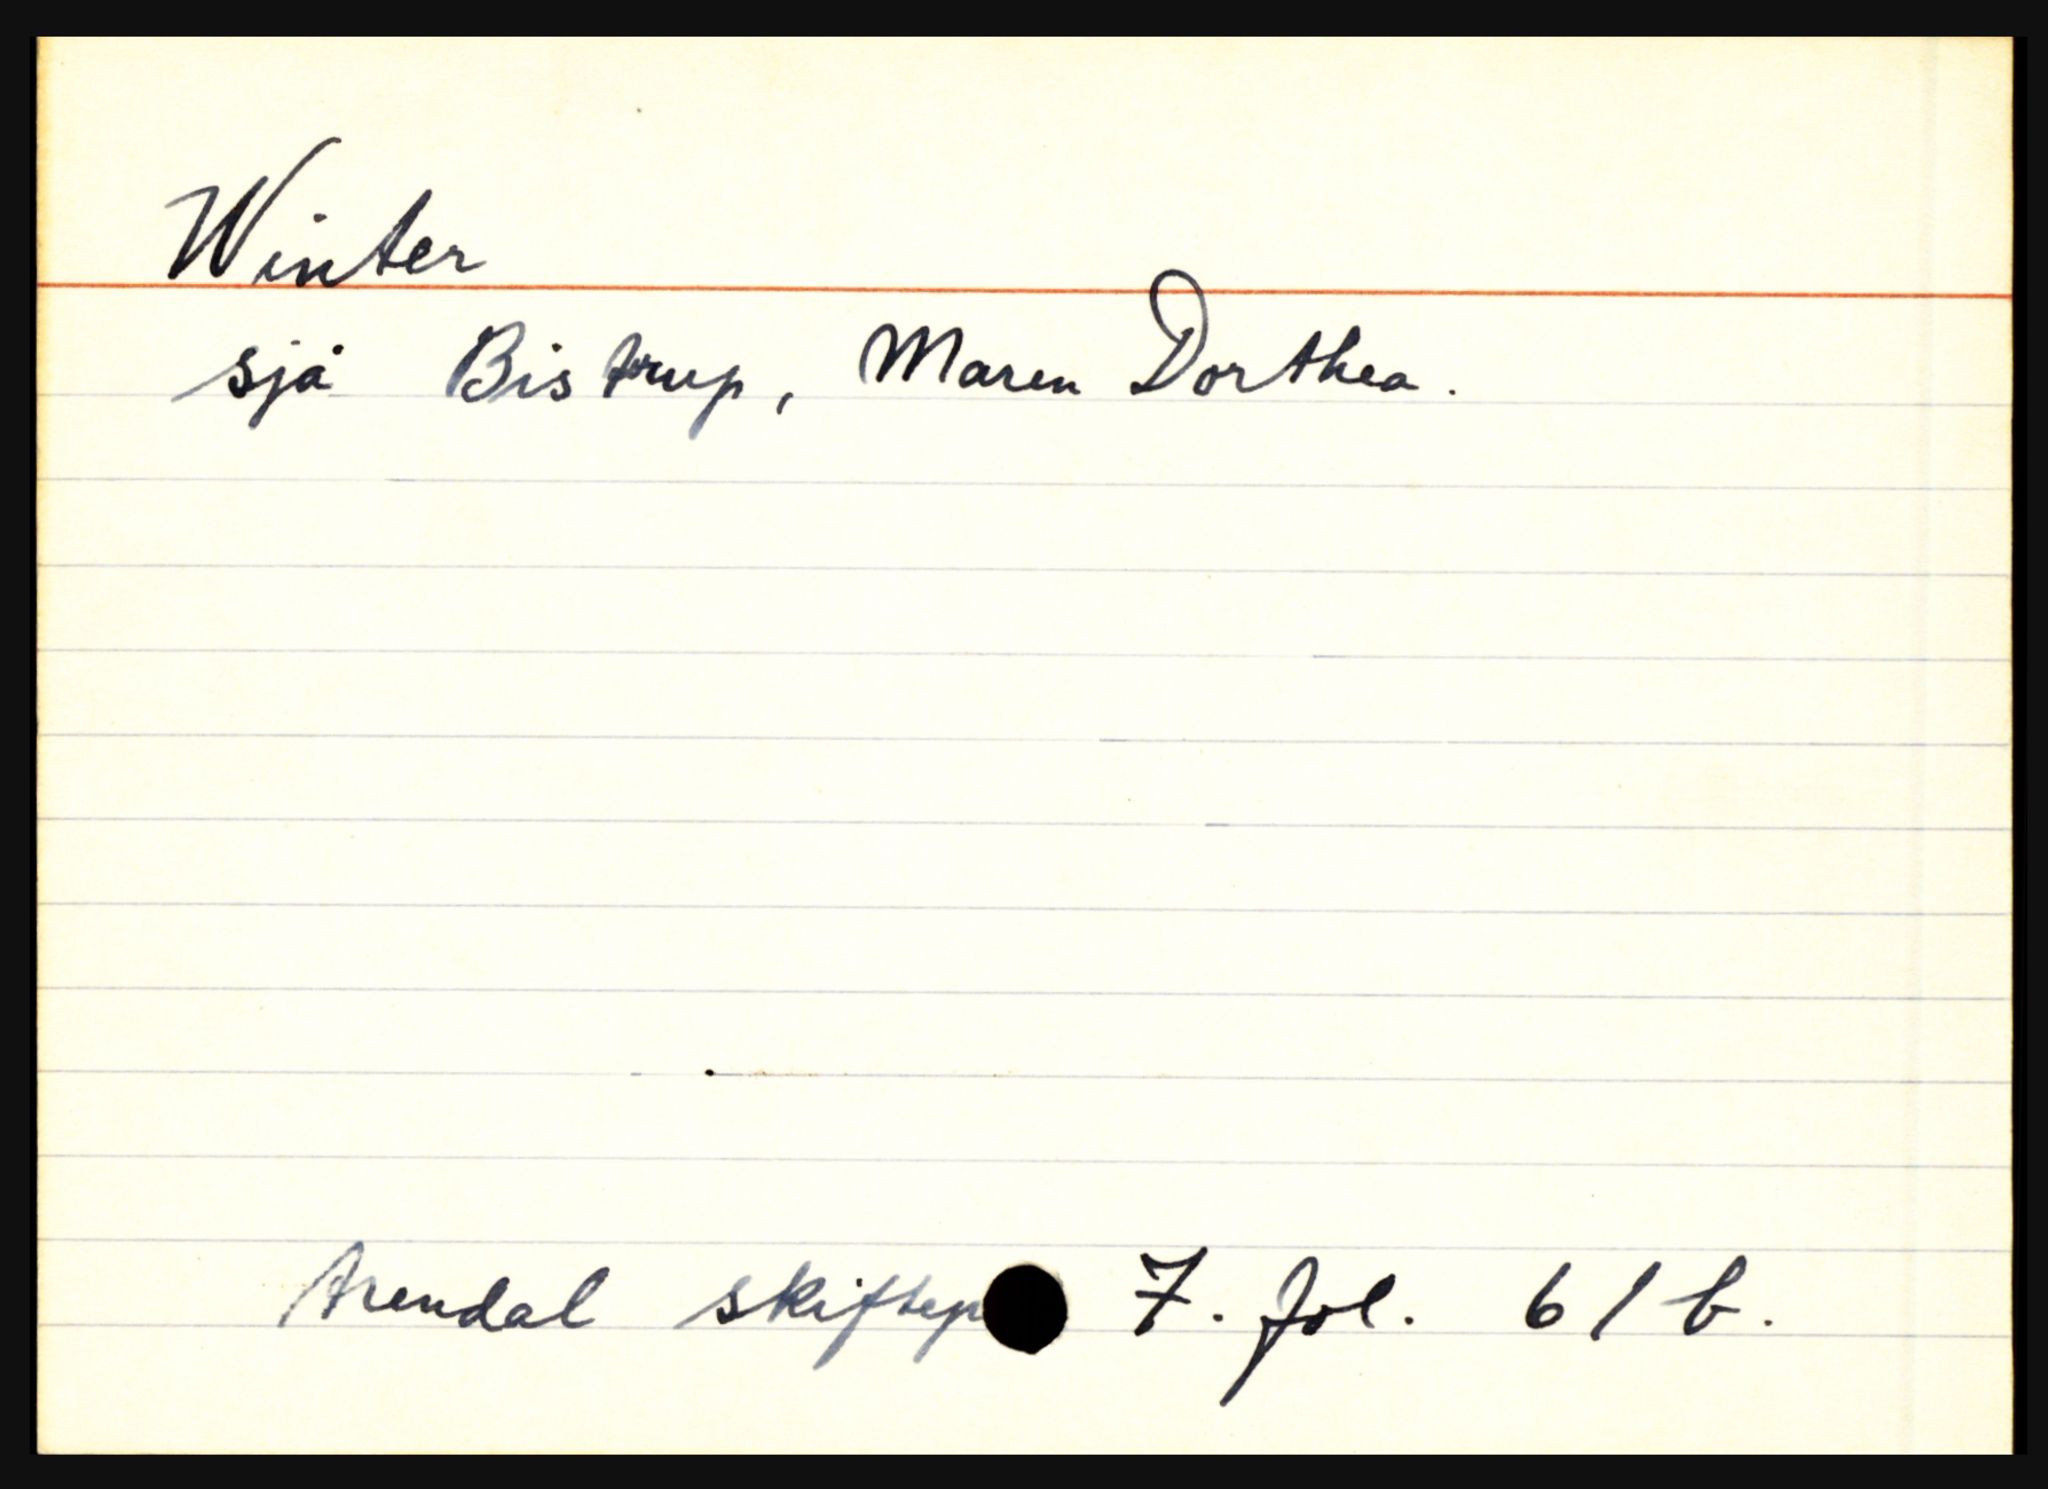 Winter
sjå Bistrup, Maren Dorthea.
Arendal skiftep 7. fol. 61b.